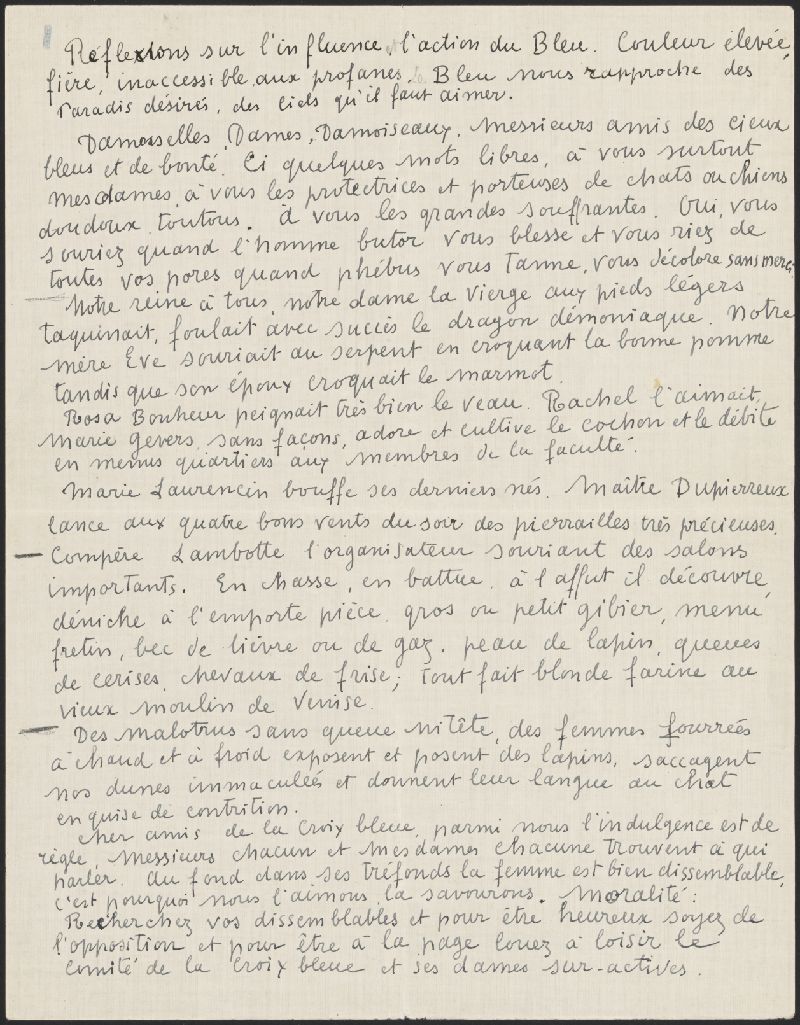 Réflexions sur l'influence, l'action du Bleu. Couleur élevée,
fière, inaccessible aux profanes. Le Bleu nous rapproche des
Paradis désirés, des Ciels qu'il faut aimer.
Damoiselles, Dames, Damoiseaux, Messieurs amis des cieux
bleus et de bonté. Ci quelques mots libres, à vous surtout
mesdames, à vous les protectrices et porteuses de chats ou chiens
doudoux, toutous. à vous les grandes souffrantes. Oui, vous
souriez quand l'homme butor vous blesse et vous riez de
toutes vos pores quand phébus vous tanne, vous décolore sans merci.
Notre reine à tous, notre dame la Vierge aux pieds légers
taquinait, foulait avec succès le dragon démoniaque. Notre
mère Eve souriait au serpent en croquant la bonne pomme
tandis que son époux croquait le marmot.
Rosa Bonheur peignait très bien le veau. Rachel l'aimait,
Marie Gevers, sans façons, adore et cultive le cochon et le débite
en menus quartiers aux membres de la faculté.
Marie Laurencin bouffe ses derniers nés. Maître Dupierreux
lance aux quatre bons vents du soir des pierrailles très précieuses.
Compère Lambotte l'organisateur souriant des salons
importants. En chasse, en battue, à l'affut il découvre,
déniche à l'emporte pièce, gros ou petit gibier, menu
fretin, bec de lièvre ou de gaz, peau de lapin, queues
de cerises, chevaux de frise; tout fait blonde farine au
vieux moulin de Venise.
Des malotrus sans queue ni tête, des femmes fourrées
à chaud et à froid exposent et posent des lapins, saccagent
nos dunes immaculées et donnent leur langue au chat
en guise de contrition.
Cher amis de la Croix bleue, parmi nous l'indulgence est de
règle, Messieurs chacun et Mesdames chacune trouvent à qui
parler. Au fond dans ses tréfonds la femme est bien dissemblable,
c'est pourquoi nous l'aimons, la savourons. Moralité:
Recherchez vos dissemblables et pour être heureux soyez de
l'opposition et pour être à la page louez à loisir le
Comité de la Croix bleue et ses dames sur-actives.